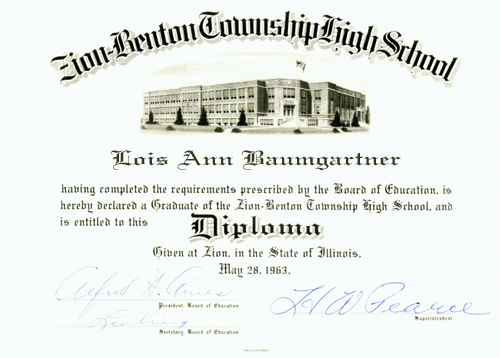 Zion-Benton Township High School
Lois Ann Baumgartner
having completed the requirements prescribed by the Board of Education, is
hereby declared a Graduate of the Zion-Benton Township High School, and
is entitled to this Diploma
Given at Zion, in the State of Illinois,
May 28, 1963.
Alfred H. Ames
President, Board of Education
H W Pearce
Superintendent
Secretary, Board of Education